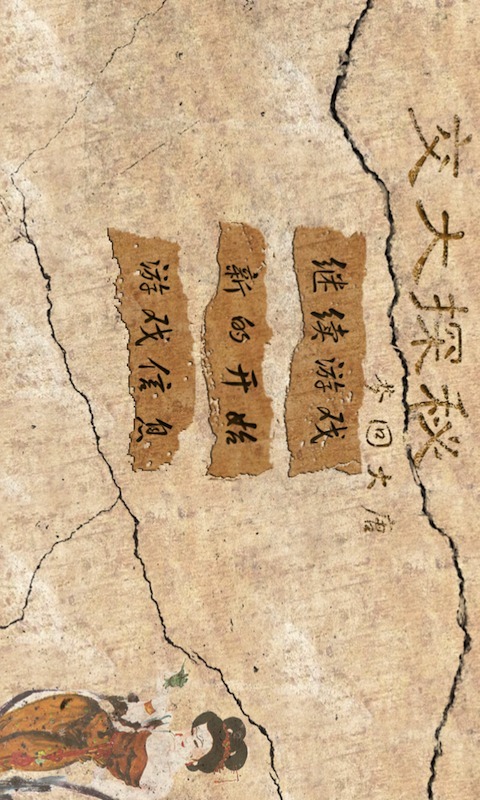 交大探秘
梦回大唐
继续游戏
新的开始
游戏信息